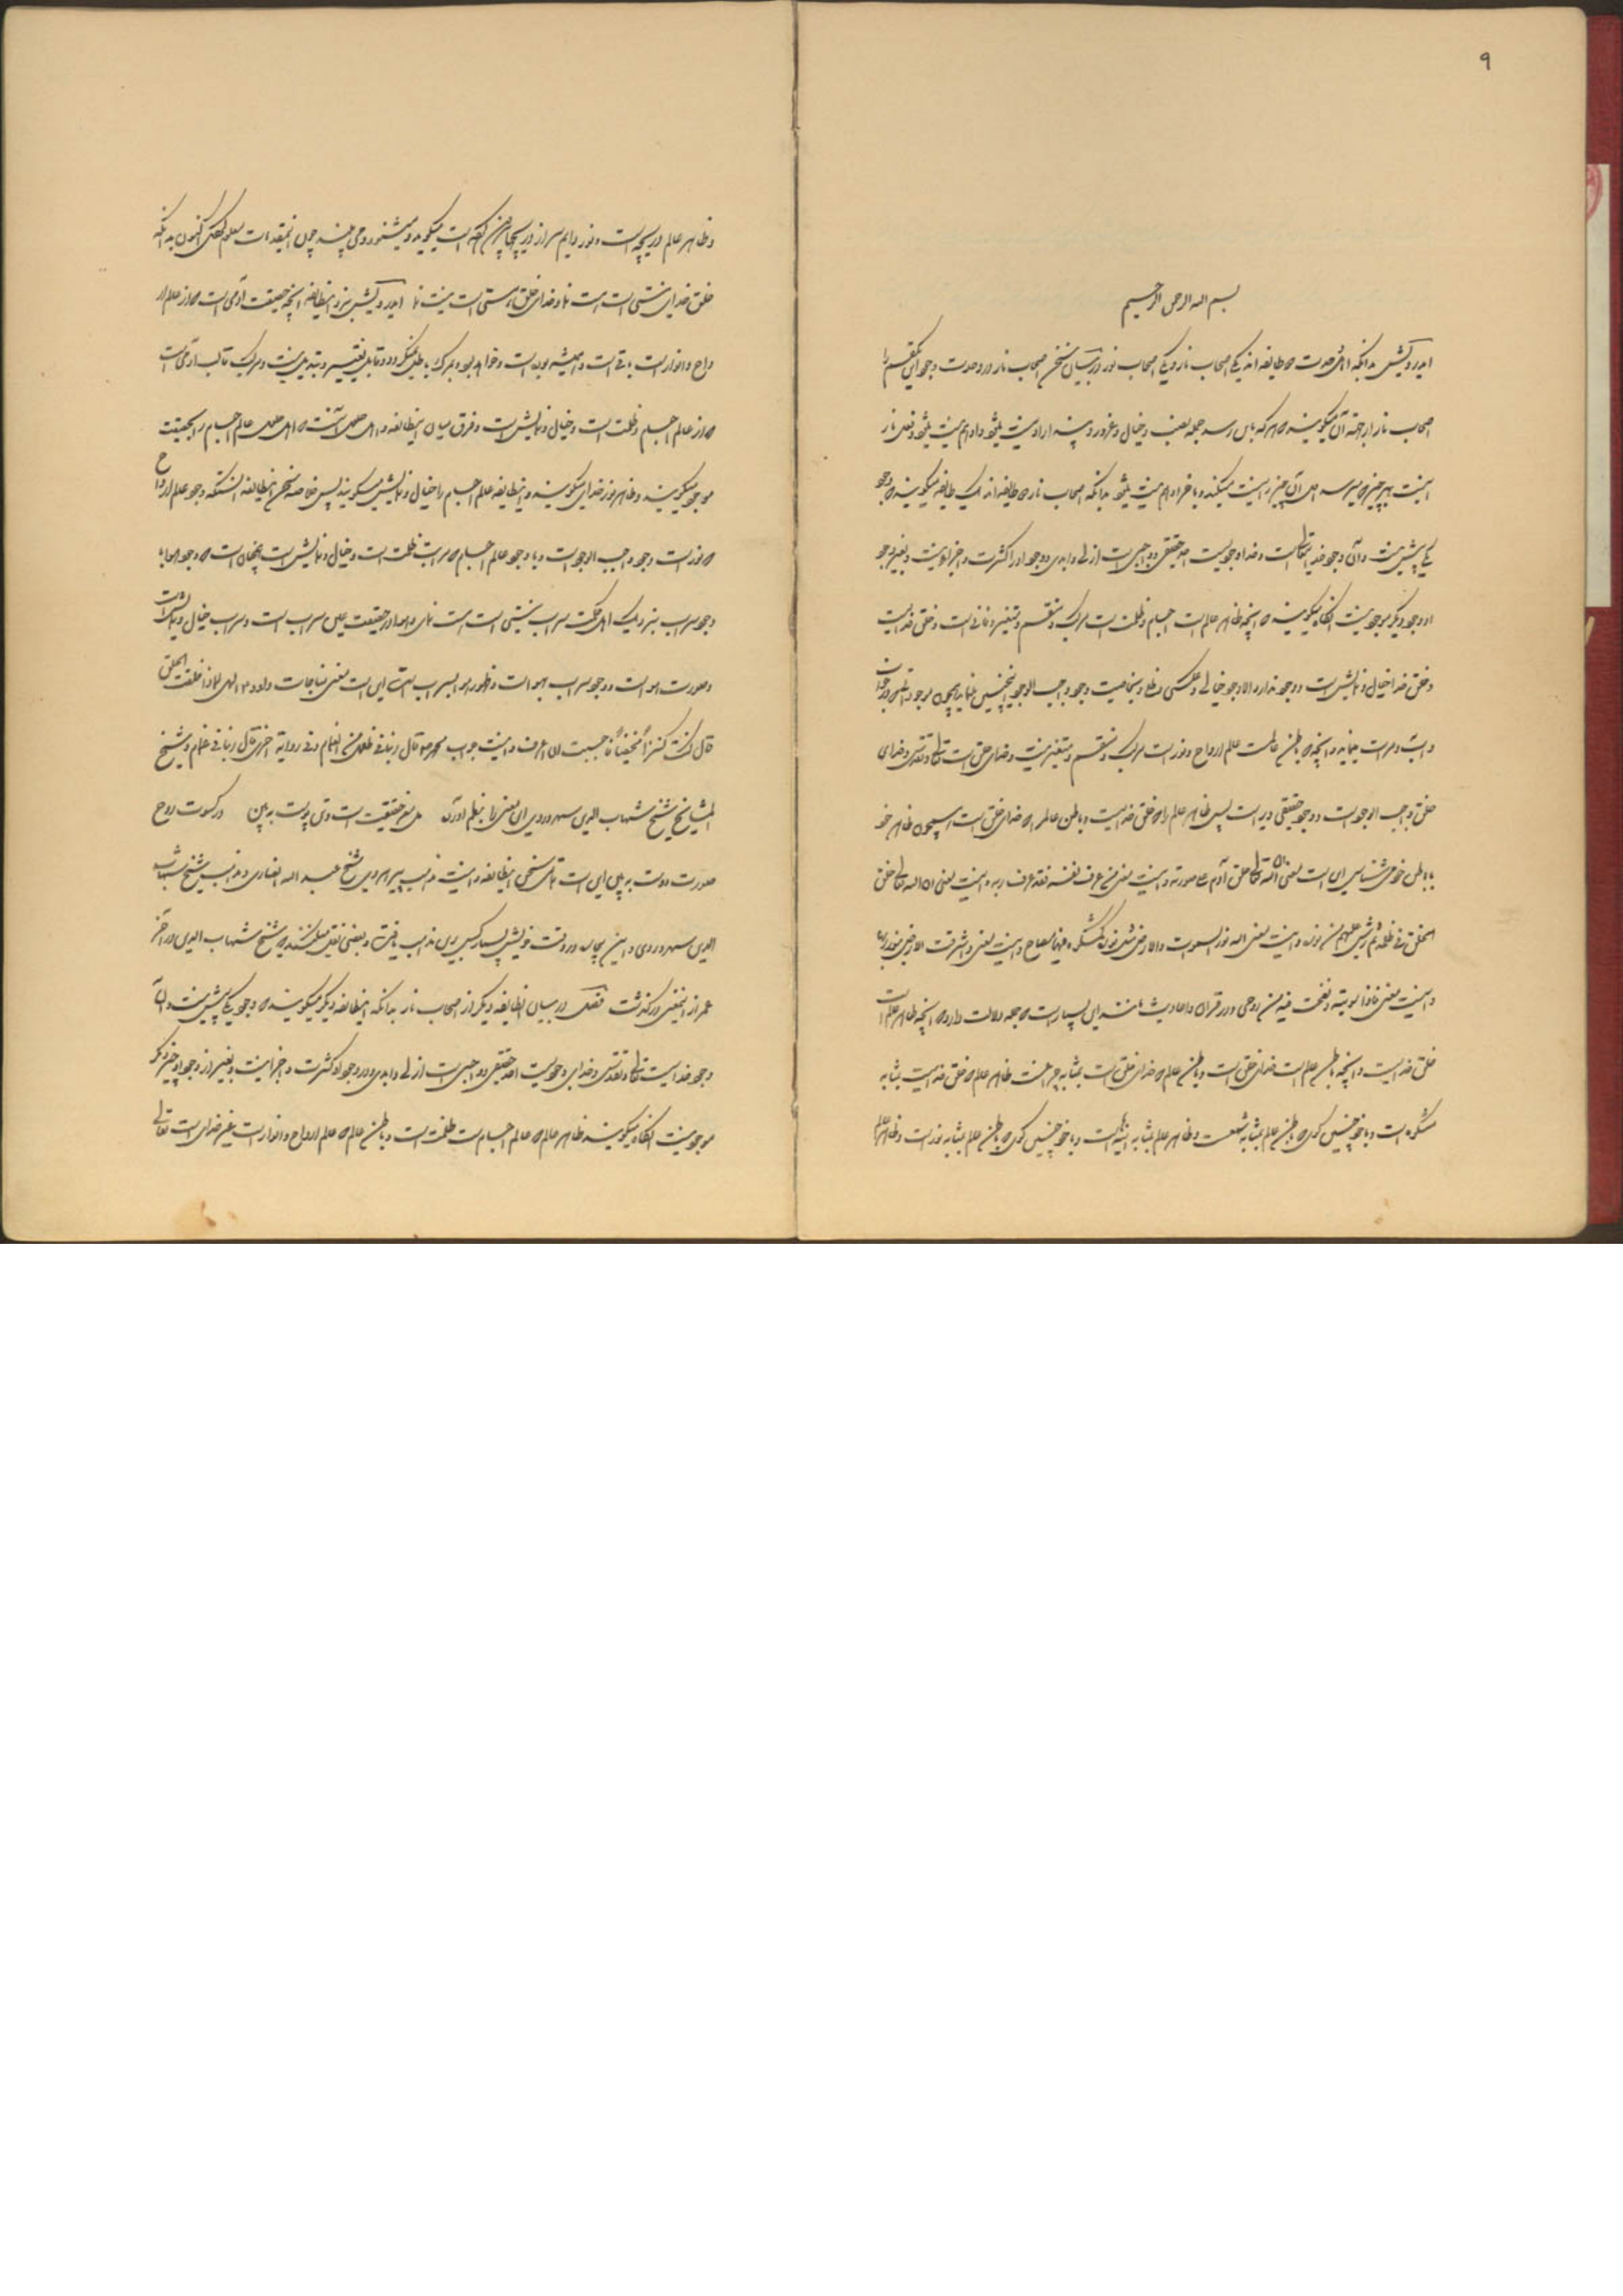 ۹
بسم الله الرحمن الرحیم
ای درویش بدانکه اهل وحدت دو طایفه اند یکی اصحاب نار و یکی اصحاب نور در بیان سخن اصحاب نار در وحدت وجود
اصحاب نار از جهت آن میگویند که هر که باین رسد جمله و خیال و غرور و پندار او نیست شود و او هم نیست شود و فعل نار
اینست بهر چیز که میرسد آن چیز را نیست میکند و بآخر او هم نیست شود بدانکه اصحاب نار دو طایفه اند یک طایفه میگویند که وجود
یکی بیش نیست و آن وجود خدایتعالی است و خدا وجودیست احد حقیقی و واجبی است ازلی و ابدی و در وجود او کثرت و اجزا نیست و بغیر وجود
او وجود دیگر موجود نیست آنگاه میگویند که آنچه ظاهر عالم است اجسام و ظلمت است مرکب و منقسم و متغیر و فانی است و خلق خدایست
و خلق خدا خیال و نمایش است و وجود ندارد الا وجود خیالی و عکسی و ظلی و بخاصیت وجود واجب الوجود اینچنین مینماید همچون موجود
و مرات مینماید و آنچه که باطن عالمست عالم ارواح و نور است مرکب و منقسم و متغیر نیست و خدای خلق است تعالی و تقدس و خدای
خلق واجب الوجود است و وجود حقیقی دارد است پس ظاهر عالم را که خلق خدایست و باطن عالم را که خدای خلق است همچون ظاهر خود
باطن خود میشناس این است معنی ان الله تعالی خلق آدم علی صورته و اینست معنی من عرف نفسه فقد عرف ربه و اینست معنی ان الله تعالی خلق
الخلق فی ظلمة ثم رش علیهم من نوره و اینست معنی الله نور السموات والارض مثل نوره کمشکوة فیها مصباح و اینست معنی و اشرقت الارض بنور ربها
و اینست معنی فاذا سویته و نفخت فیه من روحی و در قرآن و احادیث مانند این بسیار است که جمله دلالت دارد که آنچه ظاهر عالم است
خلق خدایست و آنچه باطن عالم است خدای خلق است و باطن عالم که خدای خلق است بمثابه چراغست ظاهر عالم که خلق خدایست بمثابه
مشکوة است و یا خود چنین گوی که باطن عالم بمثابه شمعست و ظاهر عالم بمثابه آینه است و یا خود چنین گوی که باطن عالم بمثابه نور است و ظاهر عالم
و ظاهر عالم دریچه است و نور دایم سر از دریچها بیرون کرده است میگوید و میشنود و می بیند چون این مقدمات معلوم کردی اکنون بدانکه
خلق خدای نیستی است هست نما و خدای خلق هستی است نیست نما ای درویش نزد این طایفه آنچه حقیقت آدمی است که از عالم ار
واح و انوار است باقی است و همیشه بوده است و خواهد بود و بمرگ باطل نمیگردد و قابل تغییر و تبدیل نیست و مرکب قالب آدمی است
که از عالم اجسام و ظلمت است و خیال و نمایش است و فرق میان این طایفه و اهل حلول آنست که اهل حلول عالم اجسام را بحقیقت
موجود میگویند و مظاهر نور خدای میگویند و این طایفه عالم اجسام را خیال و نمایش میگویند پس خلاصه سخن این طایفه آنستکه وجود عالم ارواح
که نور است وجود واجب الوجود است و با وجود عالم اجسام که مرتبه ظلمت است و خیال و نمایش است همچنان است که وجود هوا با
وجود سراب نزدیک اهل حکمت سراب نیستی است هست نمای و هوا در حقیقت عین سراب است و سراب خیال و نمایش است
و صورت هوا است و وجود سراب بهوا است و ظهور هوا بسراب است این است معنی مناجات داود ع الهی لماذا خلقت الخلق
قال کنت کنزا مخفیا فاحببت ان اعرف و اینست جواب محمد قال ربنا فی ظلل من الغمام و فی روایة اخری قال ربنا فی غمام و شیخ
المشایخ شیخ شهاب الدین سهروردی این معنی را بنظم آورده مغز حقیقت است و تن پوست ببین در کسوت روح
صورت دوست ببین این است تمامی سخن این طایفه و اینست مذهب پیر هروی شیخ عبد الله انصاری و مذهب شیخ شهاب
الدین سهروردی و این بیچاره در وقت خویش بسیار کس برین مذهب یافت و بعضی نقل میکنند که شیخ شهاب الدین در آخر
عمر از این معنی درگذشت فصل در بیان طایفه دیگر از اصحاب نار بدانکه این طایفه دیگر میگویند که وجود یکی بیش نیست و آن
وجود خدایست تعالی و تقدس و خدای وجودیست احد حقیقی و واجبی است ازلی و ابدی و در وجود او کثرت و اجزا نیست و بغیر از وجود او چیز دیگر
موجود نیست آنگاه میگویند ظاهر عالم که عالم اجسام است ظلمت است و باطن عالم که عالم ارواح و انوار است خدای است تعالی